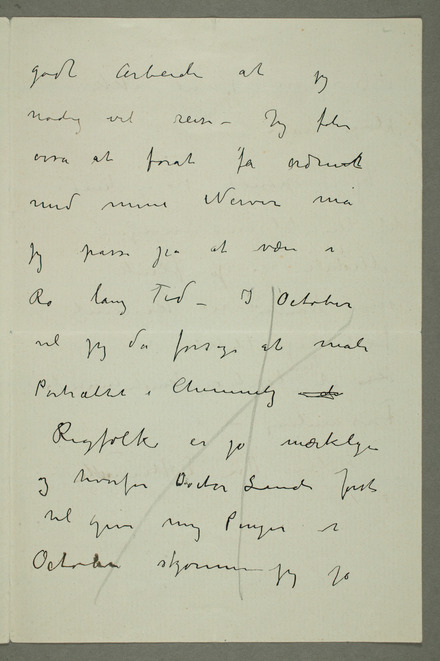 godt Arbeide at jeg
nødig vil reise – Jeg føler
osså at forat få ordnet
med mine Nerver må
jeg passe på at være i
Ro lang Tid – I October
vil jeg da forsøge at male
Portrættet i Chemnitz
Rigfolk er jo mærkelige
og hvorfor Doctor Linde først
vil give mig Penger i
October skjønner jeg jo